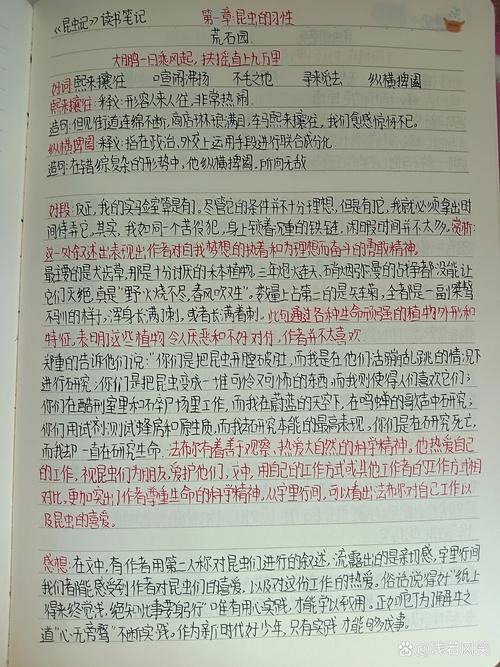 《昆虫记》读书笔记 第一章:昆虫的习性
荒石园
大鹏一日乘风起，扶摇直上九万里
好词:熙来攘往 喧闹沸扬 不毛之地 寻来觅去 纵横捭阖
熙来攘往:释义:形容人来人往，非常热闹.
造句:但见街道连绵不断，商店林琅满目，车马熙来攘往，我们愈感惊讶不已。
纵横捭阖:释义:指在政治、外交上运用手段进行联合或分化
造句:在错综复杂的形势中，他纵横捭阖，所向无敌
好段:反正，我的实验室算是有了。尽管它的条件并不十分理想，但是有了它，我就必须拿出时
间侍弄它。其实，我如同一个苦役犯，身上锁着沉重的铁链，闲暇时间并不太多。赏析:
这一处叙述出表现出作者对自我梦想的执着和为理想而奋斗的勇敢精神。
最主要的是犬齿草，那是十分讨厌的禾本植物，三年炮火连天、硝烟弥漫的战争都没能让
它们灭绝，真是“野火烧不尽，春风吹又生”。数量上占第二的是矢车菊，全都是一副桀骜
不驯的样子，浑身长满了刺，或者长满着刺。此句通过各种生命顽强的植物外形和
特征，表明了这些植物令人厌恶和不好对付，作者并不太喜欢
郑重的告诉他们说:“你们是把昆虫开膛破肚，而我是在他们活蹦乱跳的情况下
进行研究;你们是把昆虫变成一堆可怜又可怖的东西，而我则使得人们喜欢它们;
你们在酷刑室里和不辛尸场里工作，而我在蔚蓝的天空下，在鸣蝉的歌声中研究;
你们用试剂测试蜂房和原生质，而我却研究本能的最高表现，你们是在研究死亡，
而我却一直在研究生命。法布尔有着善于观察、热爱大自然的科学精神。他热爱自己
的工作，视昆虫们为朋友，爱护他们，文中，用自己的工作方式或其他工作者的工作方式相
对比，更加突出了作者尊重生命的科学精神，从字里行间，可以看出法布尔对自己工作以
及昆虫的喜爱。
感想:在文中，有作者用第二人称对昆虫们进行的叙述，流露出的是亲切感，字里行间
我们都能感受到作者对昆虫们的喜爱，以及对这份工作的热爱。俗话说得好“纸上
得来终觉浅，绝知此事要躬行”唯有用心实践，才能学以致用。正如庖丁为了解牛之
道“心无旁骛”不断实践。作为新时代好少年，只有实践才能够成事。
Bai百度 @浅若风笑